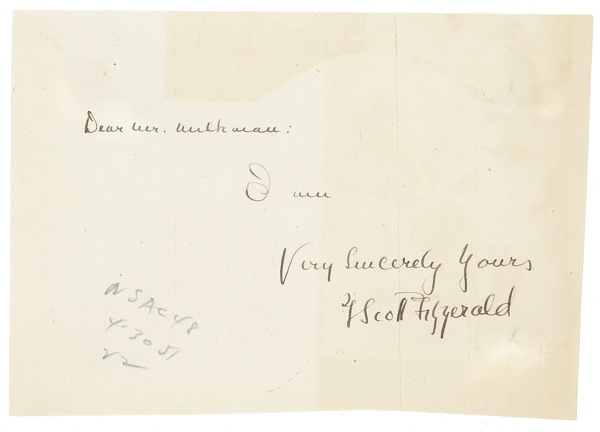 Dear Mr. Milkman:
I am
Very Sincerely Yours
F Scott Fitzgerald
NSAC48
4-30 51